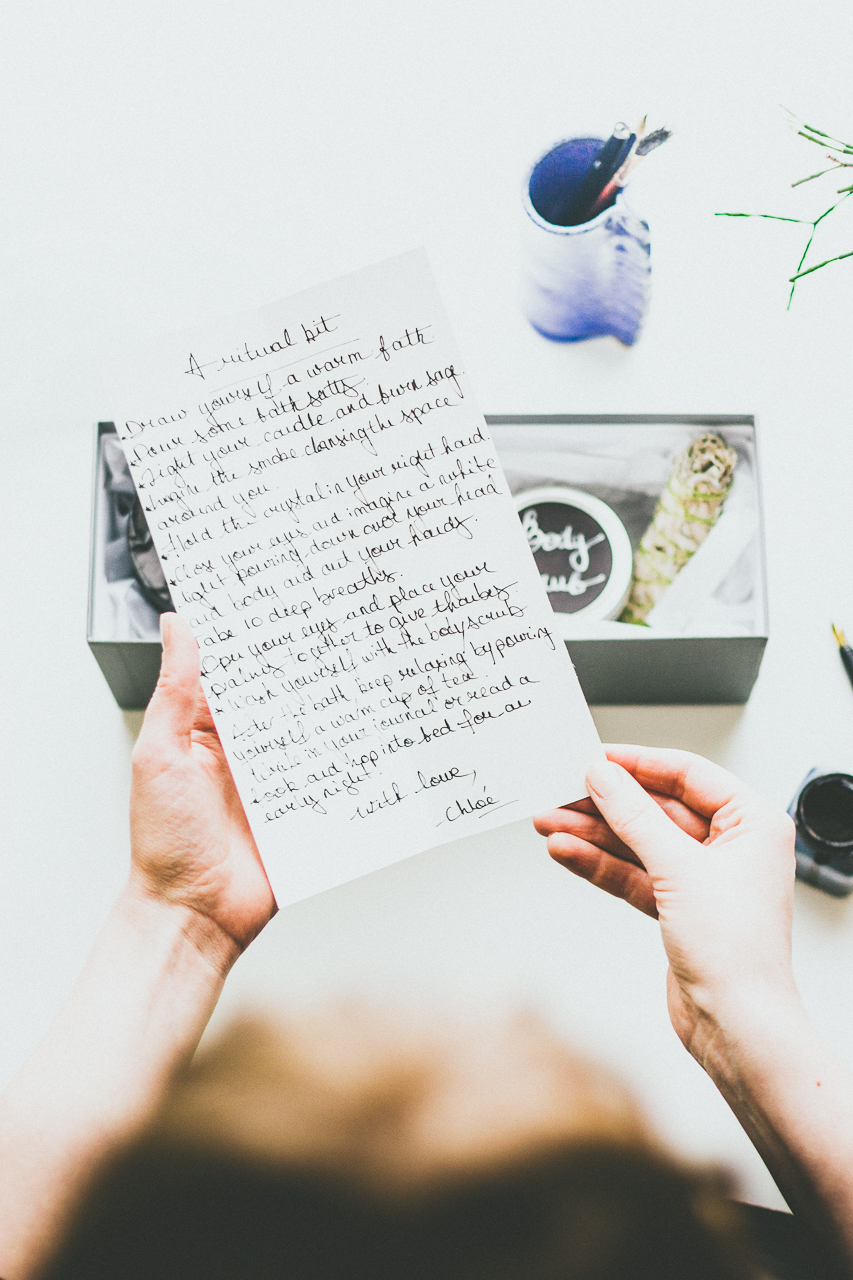 A ritual kit
Draw yourself a warm bath
Pour some bath salts.
Light your candle and burn sage.
Imagine the smoke clansing the space
around you.
Hold the crystal in your right hand.
Close your eyes and imagine a white
light pouring down over your head
and body and out your hands.
Take 10 deep breaths.
Open your eyes and place your
palms together to give thanks
Wash yourself with the body scrub
After the bath keep relaxing by pouring
yourself a warm cup of tea.
Write in your journal or read a
book and hop into bed for an
early night.
with love,
Chloé
Body